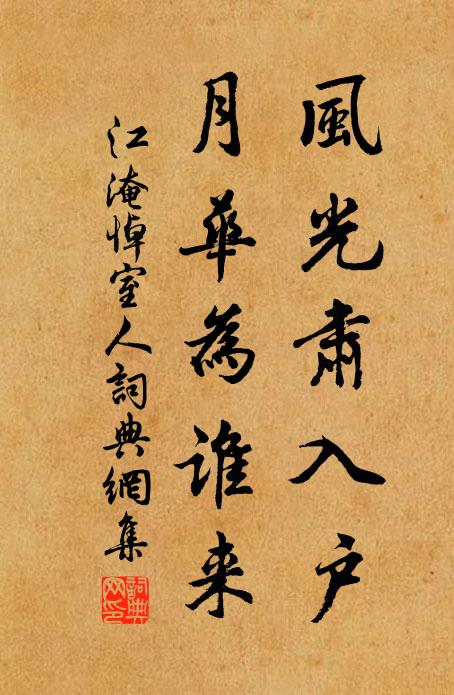 風光肅入户
月華為誰来
江淹悼室人詞典網集
詞典网印